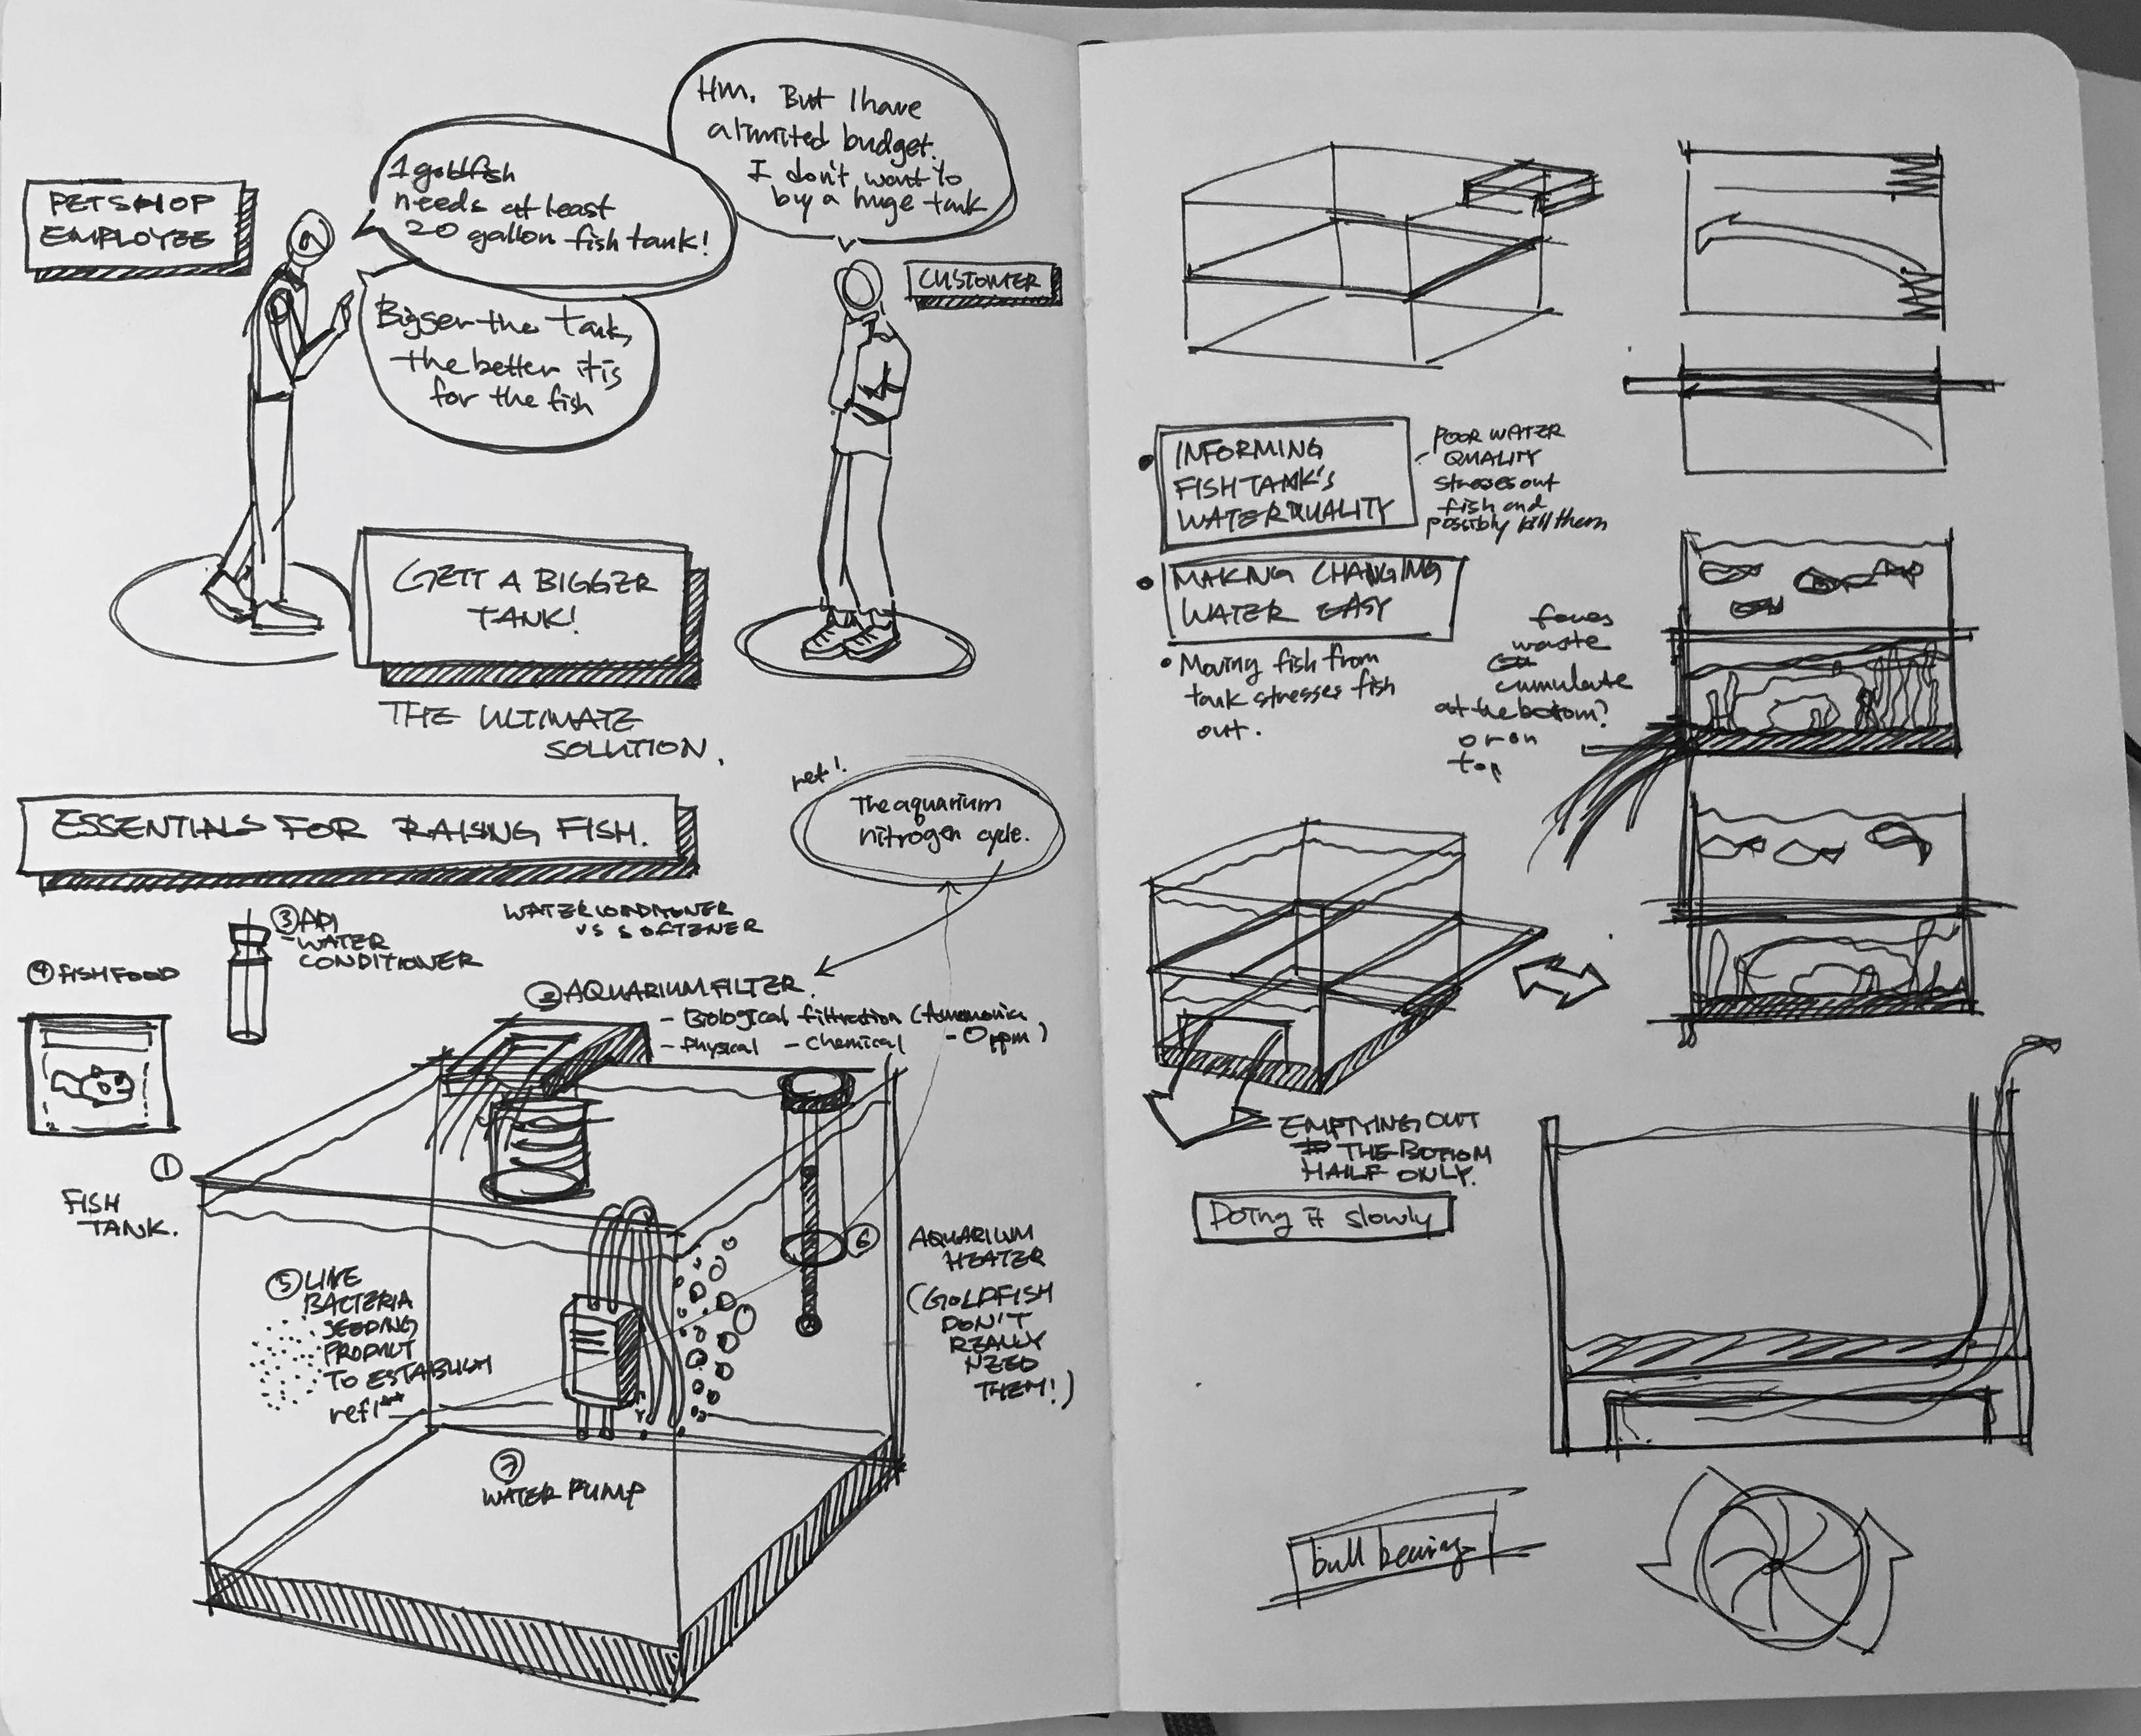 PETSHOP
EMPLOYEE
1 goldfish
needs at least
20 gallon fish tank!
Hm. But I have
a limited budget.
I don't want to
buy a huge tank
Bigger the Tank,
the better it is
for the fish
CUSTOMER
GETT A BIGGER
TANK!
THE ULTIMATE
SOLUTION.
ESSENTIALS FOR RAISING FISH.
ref!
The aquarium
nitrogen cycle.
③ API
- WATER
CONDITIONER
WATER CONDITIONER
VS SOFTENER
④ FISH FOOD
② AQUARIUM FILTER.
- Biological filtration (Ammonia
- Physical - Chemical - 0 ppm)
①
FISH
TANK.
⑤ LIVE
BACTERIA
SEEDING
PRODUCT
TO ESTABLISH
ref!**
⑥
AQUARIUM
HEATER
(GOLDFISH
DON'T
REALLY
NEED
THEM!)
⑦
WATER PUMP
• INFORMING
FISH TANK'S
WATER QUALITY
- POOR WATER
QUALITY
stresses out
fish and
possibly kill them
• MAKING CHANGING
WATER EASY
• Moving fish from
tank stresses fish
out.
waste
cumulate
at the bottom?
or on
top
EMPTYING OUT
THE BOTTOM
HALF ONLY.
Doing it slowly
bull bearing